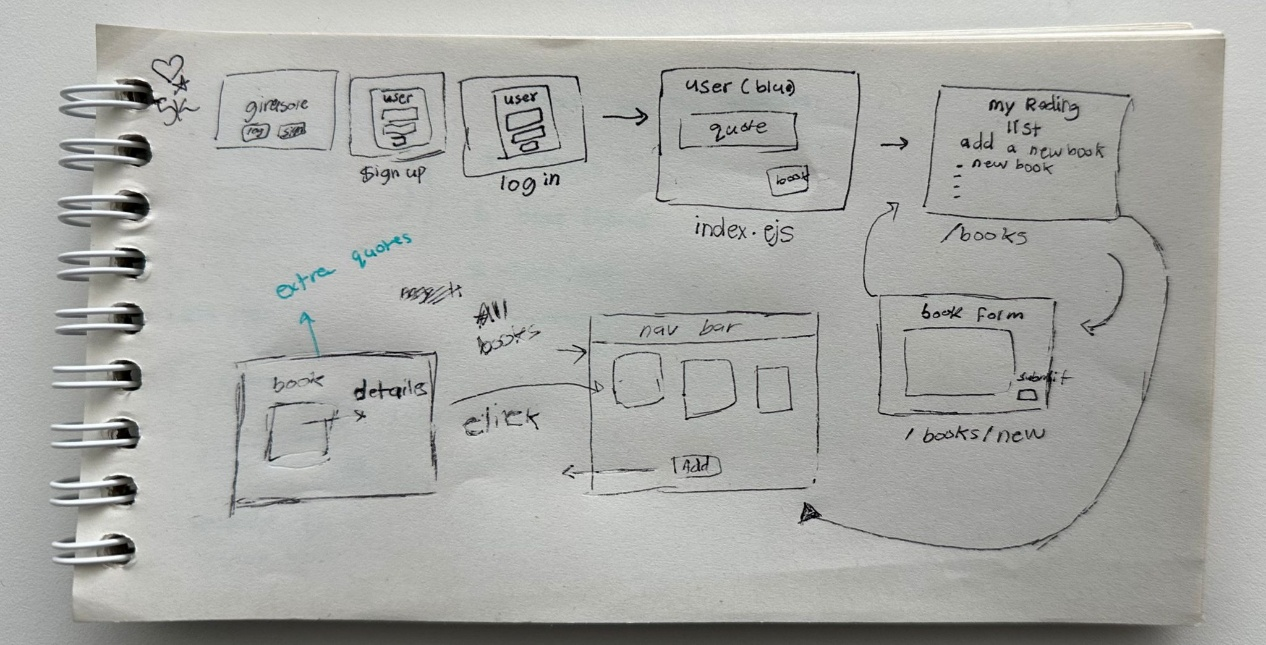 girasole
log sign
user
sign up
user
log in
user (blue)
quote
book
index.ejs
my Reding
list
add a new book
- new book
/books
extra quotes
All
books
nav bar
Add
book
details
click
book form
submit
/books/new